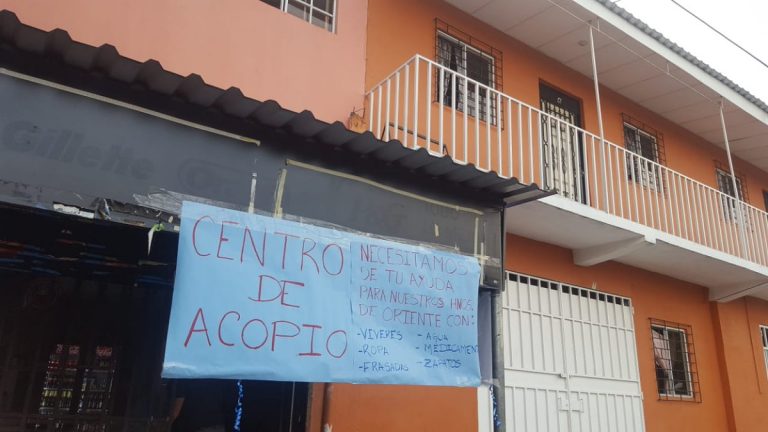 Gillette
CENTRO
DE
ACOPIO
NECESITAMOS
DE TU AYUDA
PARA NUESTROS HNOS.
DE ORIENTE CON:
-VIVERES
-ROPA
-FRASADAS
- AGUA
- MEDICAMEN
- ZAPATOS